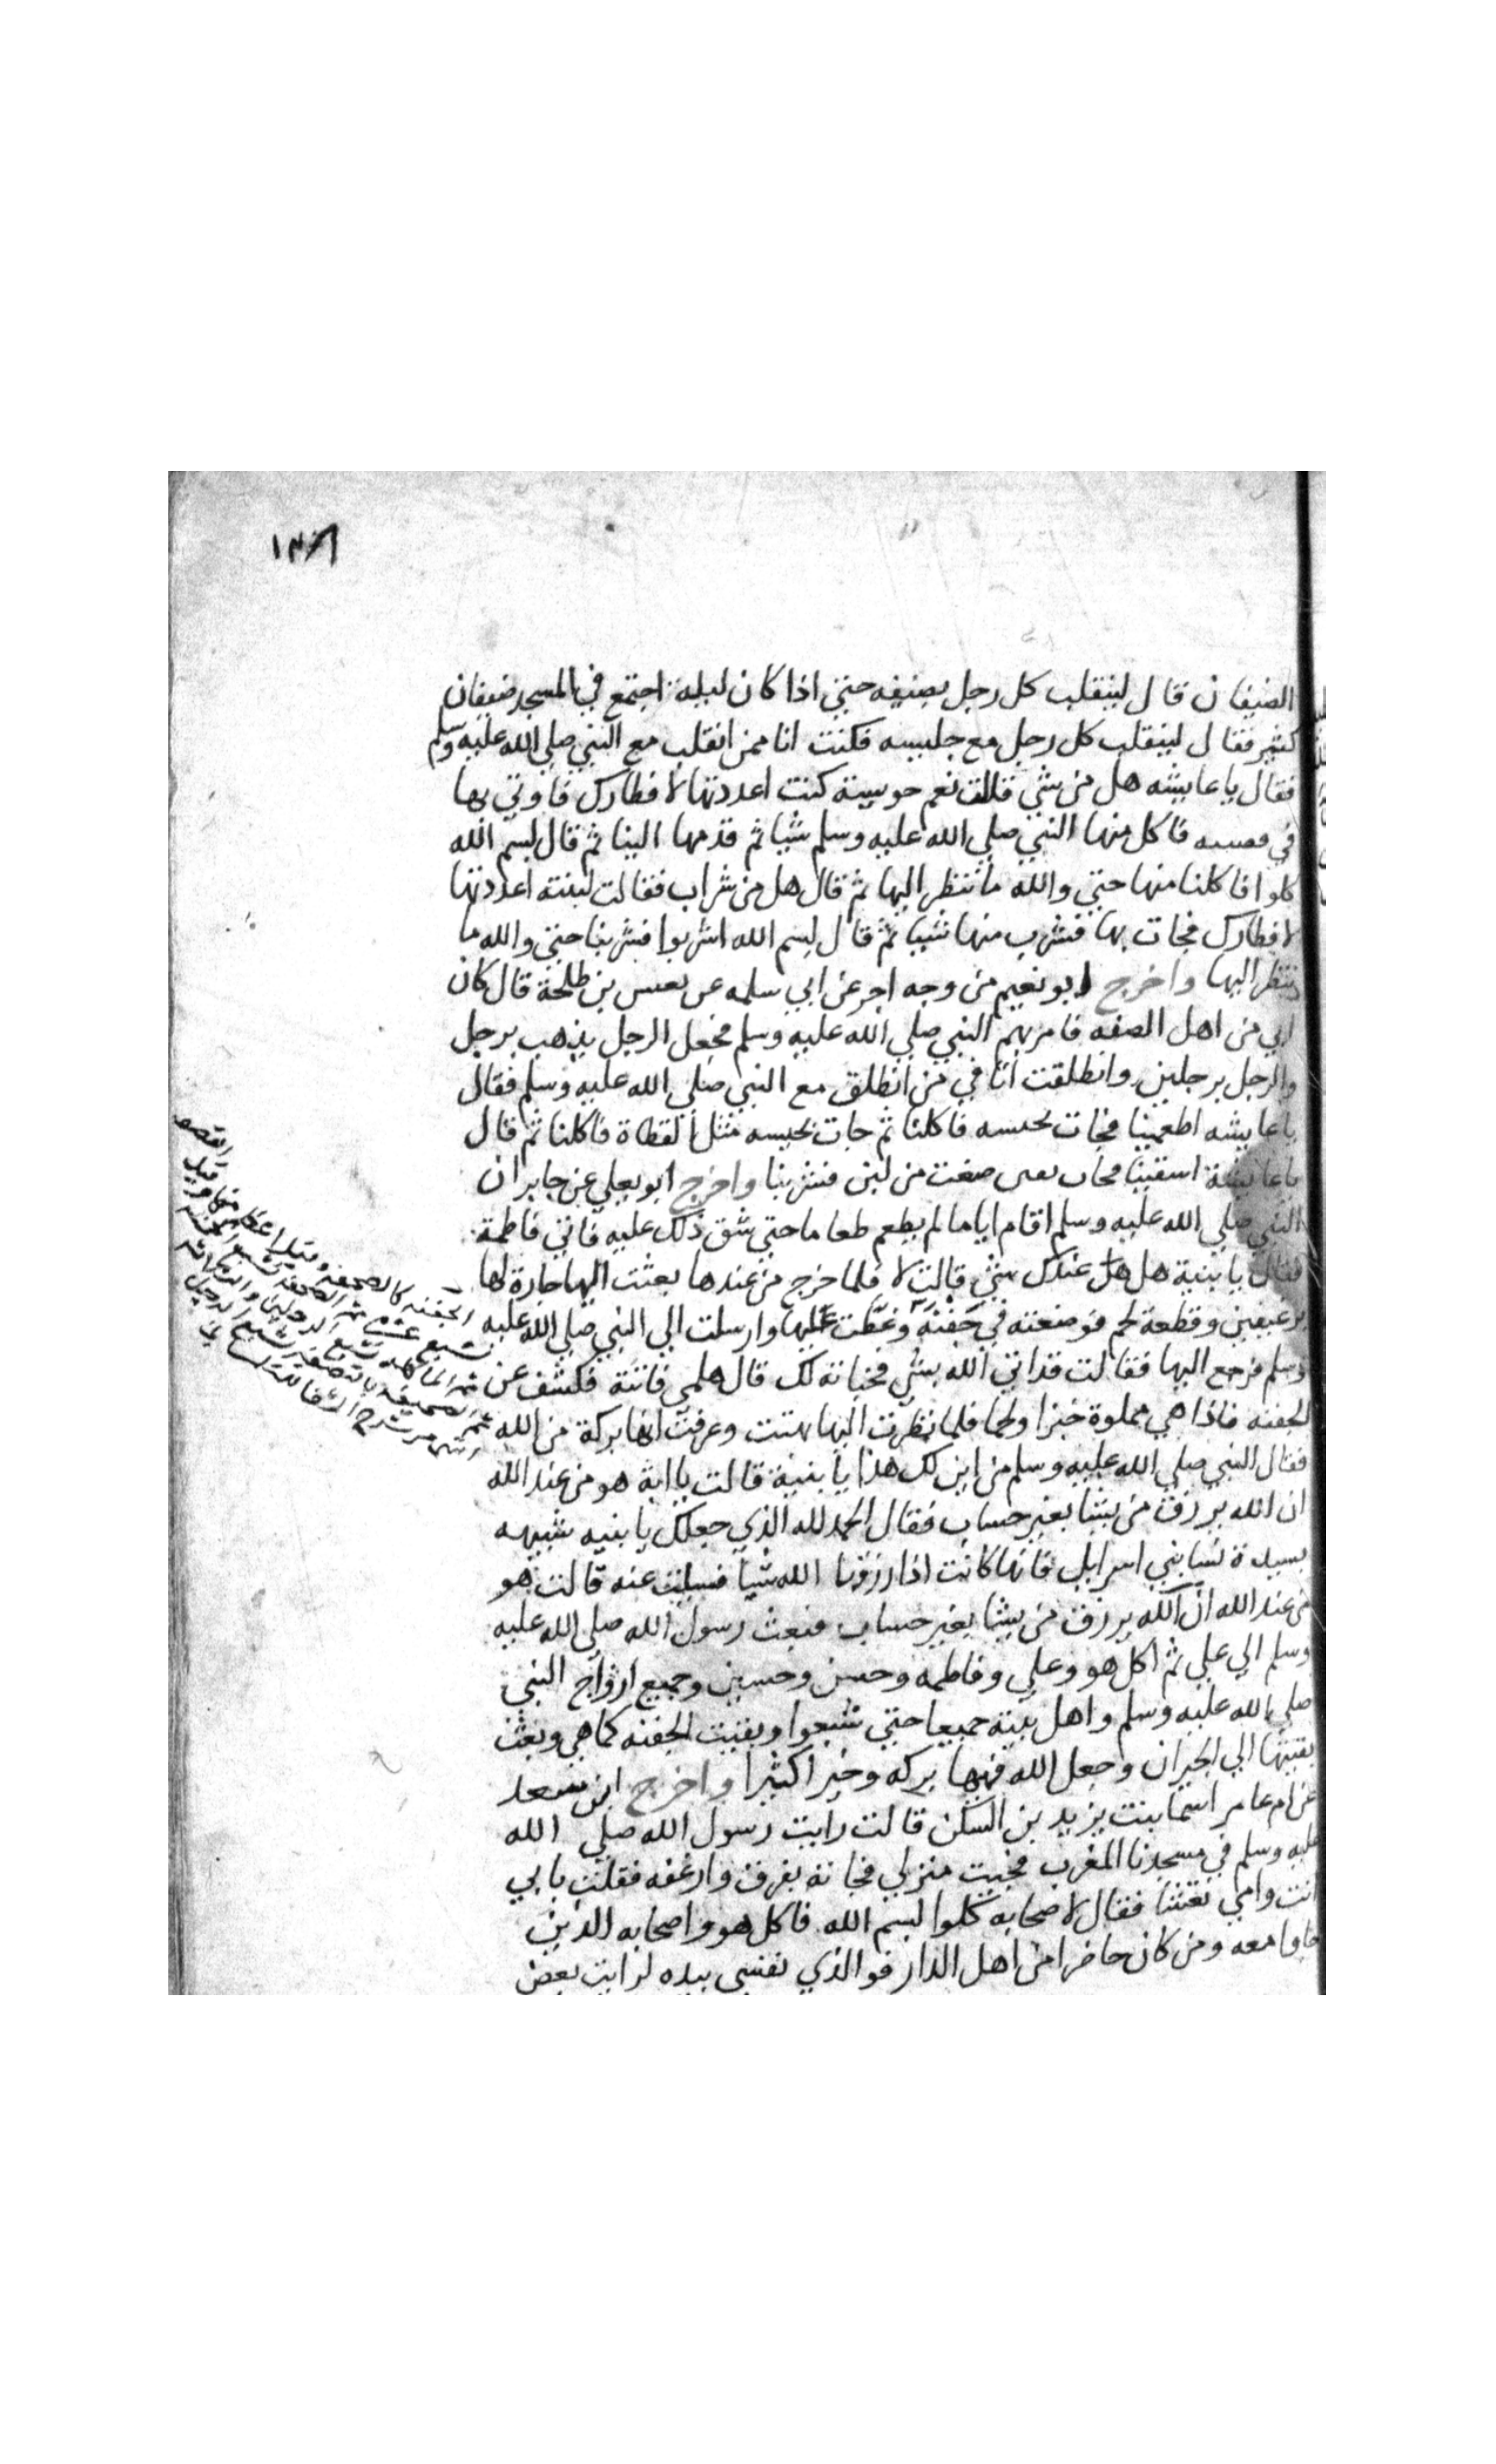 ١٣٨
الضيفان قال لينقلب كل رجل بضيفه حتي اذا كان ليلة اجتمع في المسجد ضيفان
كثير فقال لينقلب كل رجل مع جليسه فكنت انا ممن انقلب مع النبي صلي الله عليه وسلم
فقال يا عايشه هل من شي قالت نعم حويسة كنت اعددتها لافطارك فاوتي بها
في فاكل منها النبي صلي الله عليه وسلم شيا ثم قدمها الينا ثم قال بسم الله
كلوا فاكلنا منها حتي والله ما ننظر اليها ثم قال هل من شراب فقالت لبينة اعددتها
لافطارك فجات بها فشرب منها شيا ثم قال بسم الله اشربوا فشربنا حتي والله ما
ننظر اليها واخرج ابو نعيم من وجه اخر عن ابي سلمه عن بعيس بن طلحة قال كان
ابي من اهل الصفه فامر بهم النبي صلي الله عليه وسلم فجعل الرجل يذهب برجل
والرجل برجلين وانطلقت انا في من انطلق مع النبي صلي الله عليه وسلم فقال
يا عايشه اطعمينا فجات بحيسه فاكلنا ثم جات بحيسه مثل القطاة فاكلنا ثم قال
يا عايشة اسقينا فجات من لبن فشربنا واخرج ابو يعلي عن جابر ان
النبي صلي الله عليه وسلم اقام اياما لم يطعم طعاما حتي شق ذلك عليه فاتي فاطمة
فقال يا بنية هل هل عندك شي قالت لا فلما خرج من عندها بعثت اليها جارة لها
برغيفين وقطعة لحم فوضعته في جفنة وغطت عليها وارسلت الي النبي صلي الله عليه
وسلم فرجع اليها فقالت قد اتي الله بشي فخباته لك قال هلمي فاتته فكشف عن
الجفنه فاذا هي مملوة خبزا ولحما فلما نظرت اليها بهتت وعرفت انها بركة من الله
فقال النبي صلي الله عليه وسلم من اين لك هذا يا بنية قالت يا ابة هو من عند الله
ان الله يرزق من يشا بغير حساب فقال الحمد لله الذي جعلك يا بنيه شبيهه
بسيدة نسا بني اسرايل فانها كانت اذا رزقها الله شيا فسيلت عنه قالت هو
من عند الله ان الله يرزق من يشا بغير حساب فبعث رسول الله صلي الله عليه
وسلم الي علي ثم اكل هو وعلي وفاطمه وحسن وحسين وجميع ازواج النبي
صلي الله عليه وسلم واهل بيته جميعا حتي شبعوا وبقيت الجفنه كما هي وبعثت
بقيتها الي الجيران وجعل الله فيها بركه وخيرا كثيرا واخرج ابن سعد
عن ام عامر اسما بنت يزيد بن السكن قالت رايت رسول الله صلي الله
عليه وسلم في مسجدنا المغرب فجيت منزلي فجاته بعرق وارغفه فقلت بابي
انت وامي تعشا فقال لاصحابه كلوا بسم الله فاكل هو واصحابه الذين
جاوا معه ومن كان حاضرا من اهل الدار فوالذي نفسي بيده لرايت بعض
الجفنه كالصحفه وقيل اعظم منها وقيل القصعه
تشبع عشره ثم الصحفه تشبع الخمسه
ثم الماكله تشبع الرجلين والثلاثه
ثم الصحيفه بالتصغير تشبع الرجل
انتهي من شرح الشفا